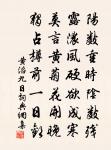 陽數重時陰數殘
露濃風硬欲成寒
莫言黃菊花開晚
獨占樽前一日歡
黃滔九日詞典網集